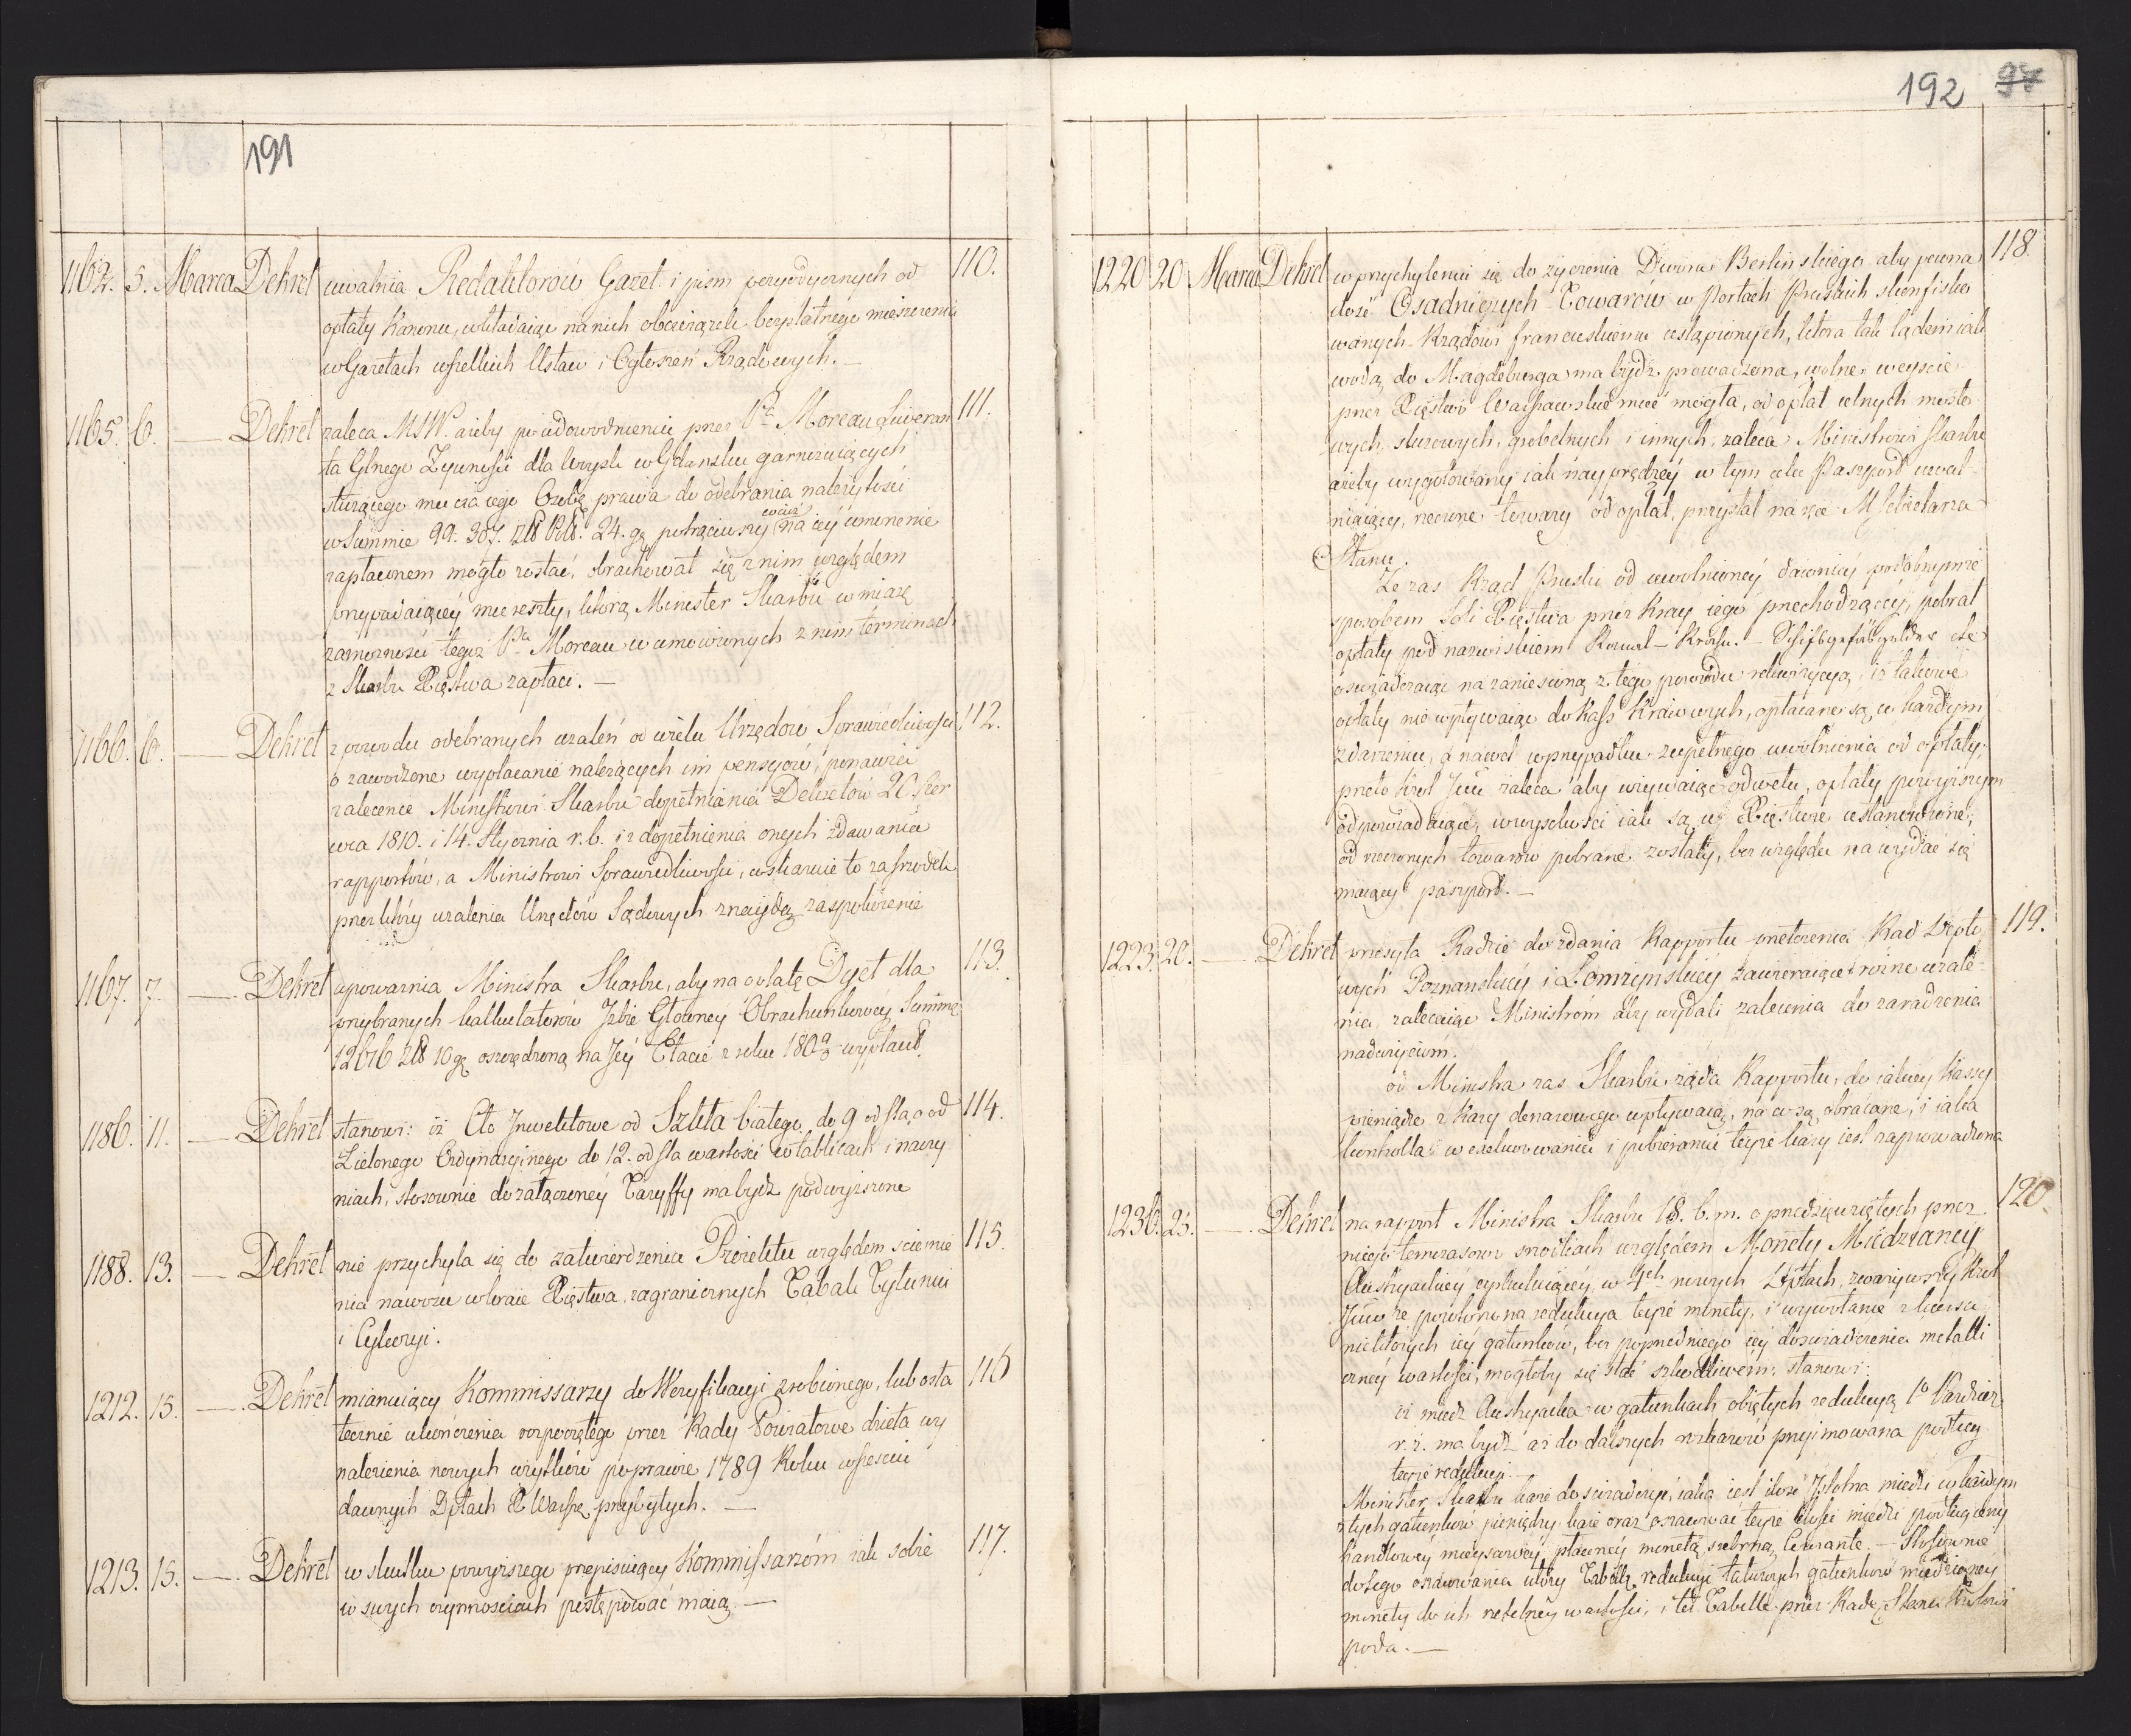 191
1162. 5. Marca Dekret uwalnia Redaktorów Gazet i pism peryodycznych od 110.
opłaty Kanonu, wkładaiąc na nich obowiązek bezpłatnego mieszczenia
w Gazetach wszelkich Ustaw i Ogłoszeń Rządowych. —
1165. 6. — Dekret zaleca MSW. ażeby po udowodnieniu przez Pa Moreau Liweran 111.
ta Glnego Żywności dla Woysk w Gdańsku garnizuiących
służącego mu czą iego Osobę prawa do odebrania należytości
w Summie 99. 307. złł 24. gr potrąciwszy co iuż na iey umorzenie
zapłaconem mogło zostać, obrachował się z nim względem
przypadaiącey mu reszty, którą Minister Skarbu w miarę
zamożności tegoż Pa Moreau w umówionych z nim terminach
z Skarbu Xięstwa zapłaci. —
1166. 6. — Dekret z powodu odebranych użaleń od wielu Urzędów Sprawiedliwości 112.
o zawodzone wypłacanie należących im pensyów, ponawia
zalecenie Ministrowi Skarbu dopełniania Dekretów 20. Czer
wca 1810. i 14. Stycznia r. b. i z dopełnienia onych zdawania
rapportów, a Ministrowi Sprawiedliwości, wskazuie to za źrodło
przez który użalenia Urzędów Sądowych znaydą zaspokoienie
1167. 7. — Dekret upoważnia Ministra Skarbu, aby na opłatę Dyet dla 113.
przybranych Kalkulatorów Izbie Głowney Obrachunkowey Summę
12616 złł 10 gr oszczędzoną na Jey Etacie z roku 1809/10 wypłacił.
1186. 11. — Dekret stanowi: iż Cło Inwektowe od Szkła białego do 9 od sta, a od 114.
Zielonego Ordynaryinego do 12. od sta wartości w tablicach i naczy
niach, stosownie do załączoney Taryffy ma bydź podwyższone
1188. 13. — Dekret nie przychyla się do zatwierdzenia Proiektu względem ścieśnie 115.
nia nawozu w kraie Xięstwa zagranicznych Tabak Tytuniu
i Cykoryi.
1212. 15. — Dekret mianuiący Kommissarzy do Weryfikacyi zrobionego, lub osta 116
tecznie ukończenia rozpoczętego przez Rady Powiatowe dzieła wy
nalezienia nowych użytków po prawie 1789 Roku w sześciu
dawnych Dptach X Warsz. przybyłych. —
1213. 15. — Dekret w skutku powyższego przepisuiący Kommissarzóm iak sobie 117.
w swych czynnościach postępować maią. —
192 97
1220 20 Marca Dekret w przychyleniu się do życzenia Dworu Berlinskiego aby pewna 118.
ilość Osadniczych Towarów w Portach Pruskich skonfisko
wanych Rządowi francuskiemu ustąpionych, która tak lądem iak
wodą do Magdeburga ma bydź prowadzona, wolne weyście
przez Xięstwo Warszawskie mieć mogła, od opłat celnych mosto
wych, sluzowych, grobelnych i innych, zaleca Ministrowi Skarbu
ażeby wygotowany iak nayprędzey w tym celu Paszport uwal-
niaiący, rzeczone towary od opłat, przysłał na ręce M Sekretarza
Stanu.
Że zas Rząd Pruski od uwolnioney dawniey podobnymże
sposobem Soli Xięstwa przez Kray iego przechodzącey, pobrał
opłaty pod nazwiskiem Kanal — Krahn. — Schifsgefäs gelder etc
oświadczaiąc na zaniesioną z tego powodu rekwizycyą, iż takowe
opłaty nie wpływaiąc do Kass Kraiowych, opłacane są w każdym
zdarzeniu, a nawet w przypadku zupełnego uwolnienia od opłaty,
przeto Krol Jmć zaleca aby używaiąc odwetu, opłaty powyższym
odpowiadaiące, w wysokości iak są w Xięstwie ustanowione,
od rzeczonych towarów pobrane zostały, bez względu na wydać się
maiący paszport. —
1223. 20. — Dekret przesyła Radzie do zdania Rapporta przełożenia Rad Depto 119.
wych Poznanskiey i Łomżynskiey zawieraiące różne użale-
nia, zalecaiąc Ministróm aby wydali zalecenia do zaradzenia
nadużyciom.
od Ministra zas Skarbu żąda Rapportu, do iakiey Kassy
pieniądze z Kary denarowego wpływaią, na co są obracane, i iaka
kontrolla w exekwowaniu i pobieraniu teyże kary iest zaprowadzona
1236. 25. — Dekret na rapport Ministra Skarbu 18. b. m. o przedsięwziętych przez 120.
niego temczasowo srodkach względem Monety Miedzianey
Austryackiey cyrkuluiącey w 4ch nowych Dptach, zważywszy Krol
Jmć że powtórna redukcya teyże monety, i wywołanie z kursu
niektórych iey gatunków, bez poprzedniego iey doświadczenia metalli
czney wartości, mogłoby się stać szkodliwém; stanowi:
iż miedź Austryacka w gatunkach obiętych redukcyą 1o Paźdźier
r. z. ma bydź aż do dalszych rozkazów przyimowana podług
teyże redukcyi. —
Minister Skarbu każe doświadczyć, iaka iest ilość Istotna miedzi w każdym
z tych gatunków pieniędzy każe oraz oszacować teyże ilość miedzi podług ceny
handlowey mieyscowey, płacney monetą srebrną Courante. — Stosownie
do tego oszacowania ułoży Tabellę redukcyi takowych gatunków miedzianey
monety do ich rzetelney wartości, i też Tabelle przez Radę Stanu Królowi
poda. —